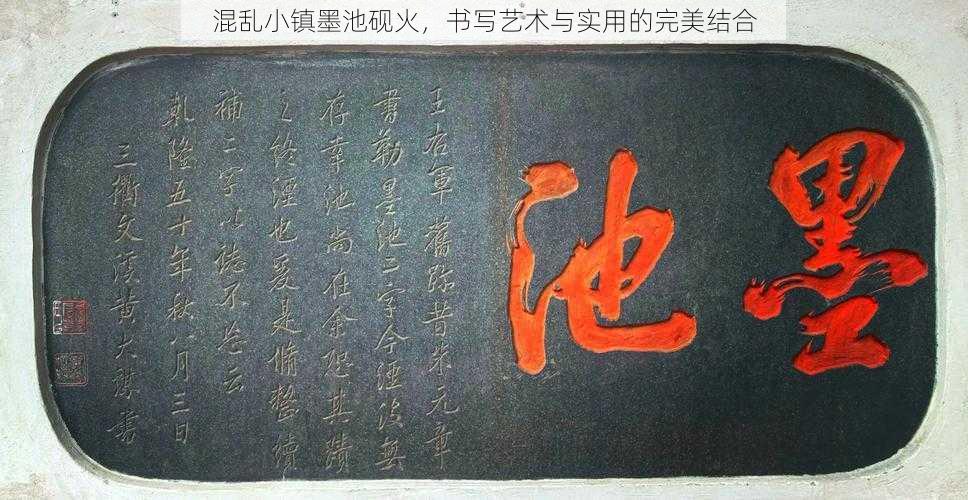 混乱小镇墨池砚火，书写艺术与实用的完美结合
墨池
王右軍舊跡昔朱元章
書勒墨池二字今湮没無
存幸池尚在余恐其蹟
之終湮也爰是脩整續
補二字以誌不忘云
乹隆五十年秋八月三日
三衢文溪黄大
書